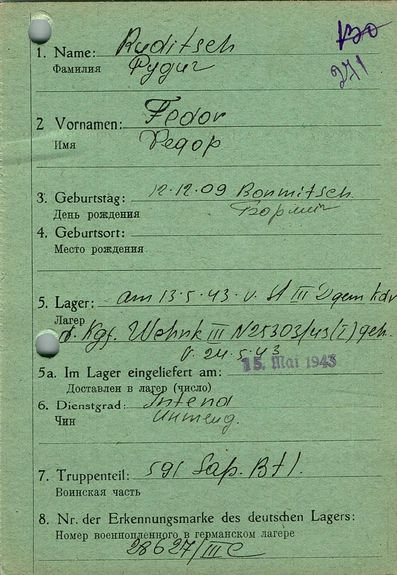 130
271
1. Name: Ruditsch
Фамилия Рудич
2 Vornamen: Fedor
Имя Федор
3. Geburtstag: 12.12.09 Bonmitsch
День рождения
4. Geburtsort:
Место рождения
5. Lager: am 13.5.43. v. St III D gem Kdv
Лагер d. Kgf. Wehrk III N25303/43(I) geh.
v. 24.5.43
5a. Im Lager eingeliefert am: 15. Mai 1943
Доставлен в лагер (число)
6. Dienstgrad: Intend
Чин Интенд.
7. Truppenteil: 591 Sap. Btl.
Воинская часть
8. Nr. der Erkennungsmarke des deutschen Lagers:
Номер военнопленного в германском лагере
28627/III C